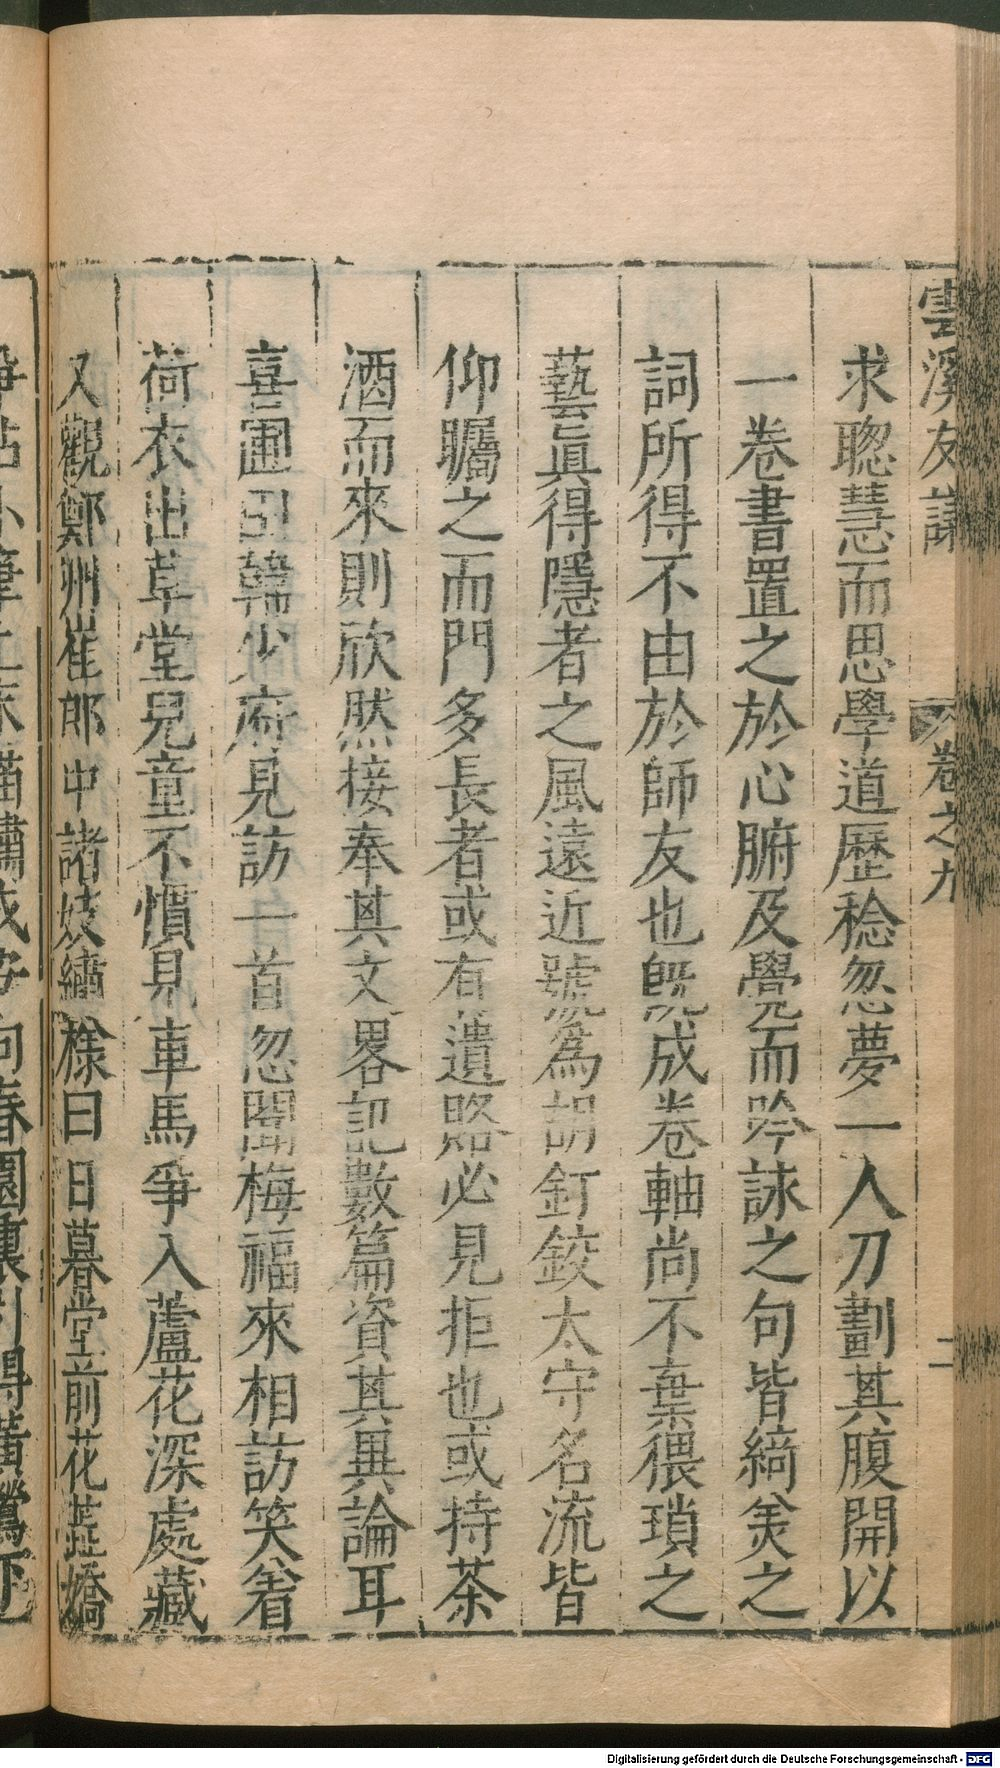 雲溪友議 卷之九 二
求聰慧而思學道歷稔忽夢一人刀劃其腹開以
一卷書置之於心腑及覺而吟詠之句皆綺美之
詞所得不由於師友也旣成卷軸尚不棄猥瑣之
藝眞得隱者之風遠近號爲胡釘鉸太守名流皆
仰矚之而門多長者或有遺賂必見拒也或持茶
酒而來則欣然接奉其文畧記數篇資其異論耳
喜圃田韓少府見訪一首忽聞梅福來相訪笑着
荷衣出草堂兒童不慣見車馬爭入蘆花深處藏
又觀鄭州崔郎中諸妓繡樣曰日暮堂前花蕋嬌
爭拈小筆上床描繡成安向春園裏引得黃鶯下
Digitalisierung gefördert durch die Deutsche Forschungsgemeinschaft - DFG